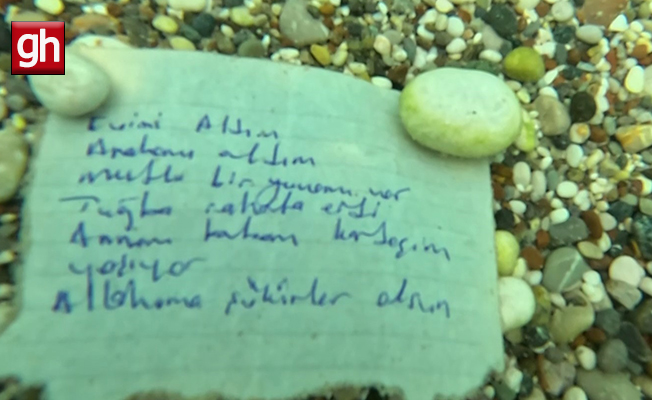 gh
Evimi Aldım
Arabamı aldım
mutlu bir yuvam var
Tuğba rahata erdi
Annem babam kardeşim
yaşıyor
Allahıma şükürler olsun